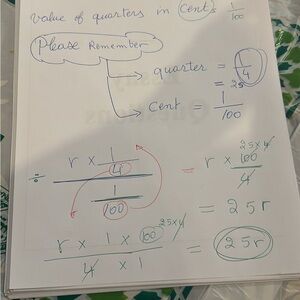 value of quarters in cent. 1/100
Please Remember
→ quarter = 1/4
= 25
→ cent = 1/100
÷ r × 1/4 / 1/100 = r × 100/4 25×4
= 25r
r × 1 × 100 / 4 × 1 25×4 = 25r